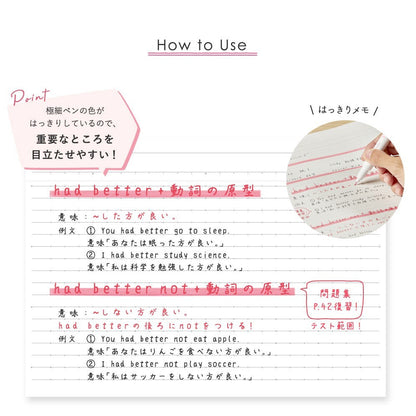 How to Use
Point
極細ペンの色が
はっきりしているので、
重要なところを
目立たせやすい！
はっきりメモ
had better+動詞の原型
意味：～した方が良い。
例文 ① You had better go to sleep.
意味「あなたは眠った方が良い。」
② I had better study science.
意味「私は科学を勉強した方が良い。」
had better not+動詞の原型
問題集
P.42復習！
意味：～しない方が良い。
had betterの後ろにnotをつける！
テスト範囲！
例文 ① You had better not eat apple.
意味「あなたはりんごを食べない方が良い。」
② I had better not play soccer.
意味「私はサッカーをしない方が良い。」